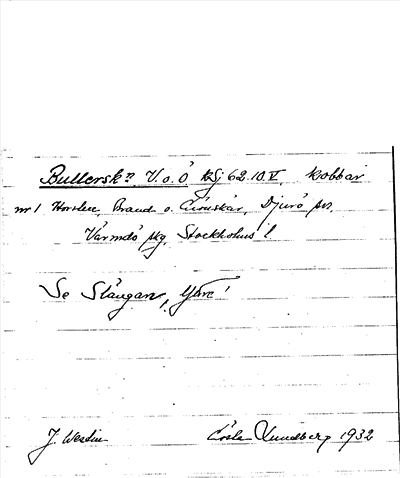 Bullersk:n V. o. Ö kbj 62.10.V. kobbar
nr 1 Horsten, Brand o. Gråskär, Djurö sn,
Värmdö skg, Stockholms l
Se Stångan,
J. Westin Gösta Lundberg 1932